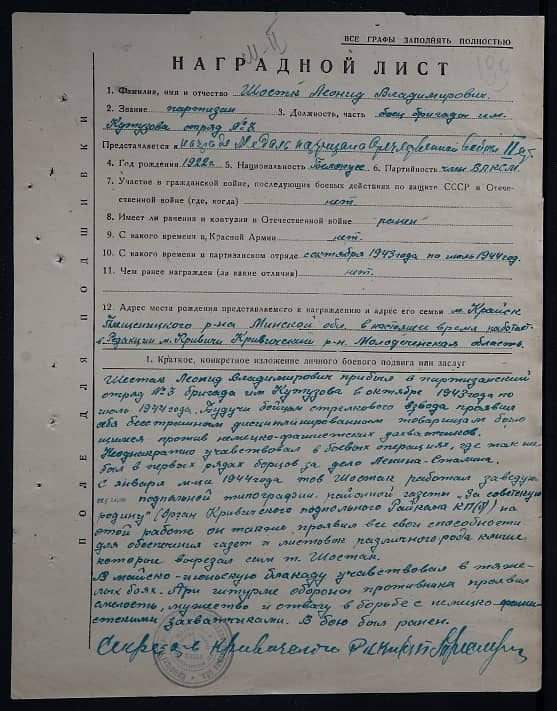 ВСЕ ГРАФЫ ЗАПОЛНЯТЬ ПОЛНОСТЬЮ
НАГРАДНОЙ ЛИСТ
1. Фамилия, имя и отчество Шостак Леонид Владимирович.
2. Звание партизан 3. Должность, часть боец бригады им.
Кутузова отряд №
Представляется к награде Медаль партизана Отечественной войны II ст.
4. Год рождения 1922г. 5. Национальность Белорус 6. Партийность член ВЛКСМ.
7. Участие в гражданской войне, последующих боевых действиях по защите СССР и Отече-
ственной войне (где, когда) нет.
8. Имеет ли ранения и контузии в Отечественной войне ранен
9. С какого времени в Красной Армии нет.
10. С какого времени в партизанском отряде с октября 1943 года по июль 1944 год.
11. Чем ранее награжден (за какие отличия) нет.
12. Адрес места рождения представляемого к награждению и адрес его семьи м. Крайск
Плещеницкого р-на Минской обл. в настоящее время работает
в Редакции м. Кривичи Кривичский р-н. Молодеченская область.
1. Краткое, конкретное изложение личного боевого подвига или заслуг
Шостак Леонид Владимирович прибыл в партизанский
отряд №3 бригада им Кутузова в октябре 1943 года по
июль 1944 года. Будучи бойцом стрелкового взвода проявил
себя бесстрашным дисциплинированным товарищам борю
щимся против немецко-фашистских захватчиков.
Неоднократно учавствовал в боевых операциях, где так же
был в первых рядах борцов за дело Ленина-Сталина.
С января м-ца 1944 года тов Шостак работал заведую
щим подпольной типографии районной газеты „За советскую
родину" (Орган Кривичского подпольного Райкома КП(б)) на
этой работе он также, проявил все свои способности
для обеспечения газет и листовок различного рода клише
которые вырезал сам т. Шостак.
В майско-июньскую блокаду учавствовал в тяже-
лых боях. При штурме обороны противника проявил
смелость, мужество и отвагу в борьбе с немецко-фаши-
стскими захватчиками. В бою был ранен.
Секретарь Кривичского
ПОЛЕ ДЛЯ ПОДШИВКИ